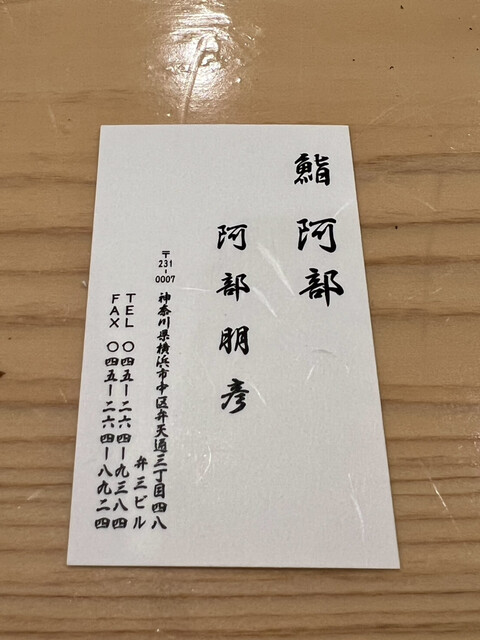 鮨 阿部
阿部朋彦
〒231-0007
神奈川県横浜市中区弁天通三丁目四八
弁三ビル
TEL 〇四五ー二六四ー九三八四
FAX 〇四五ー二六四ー八九二四